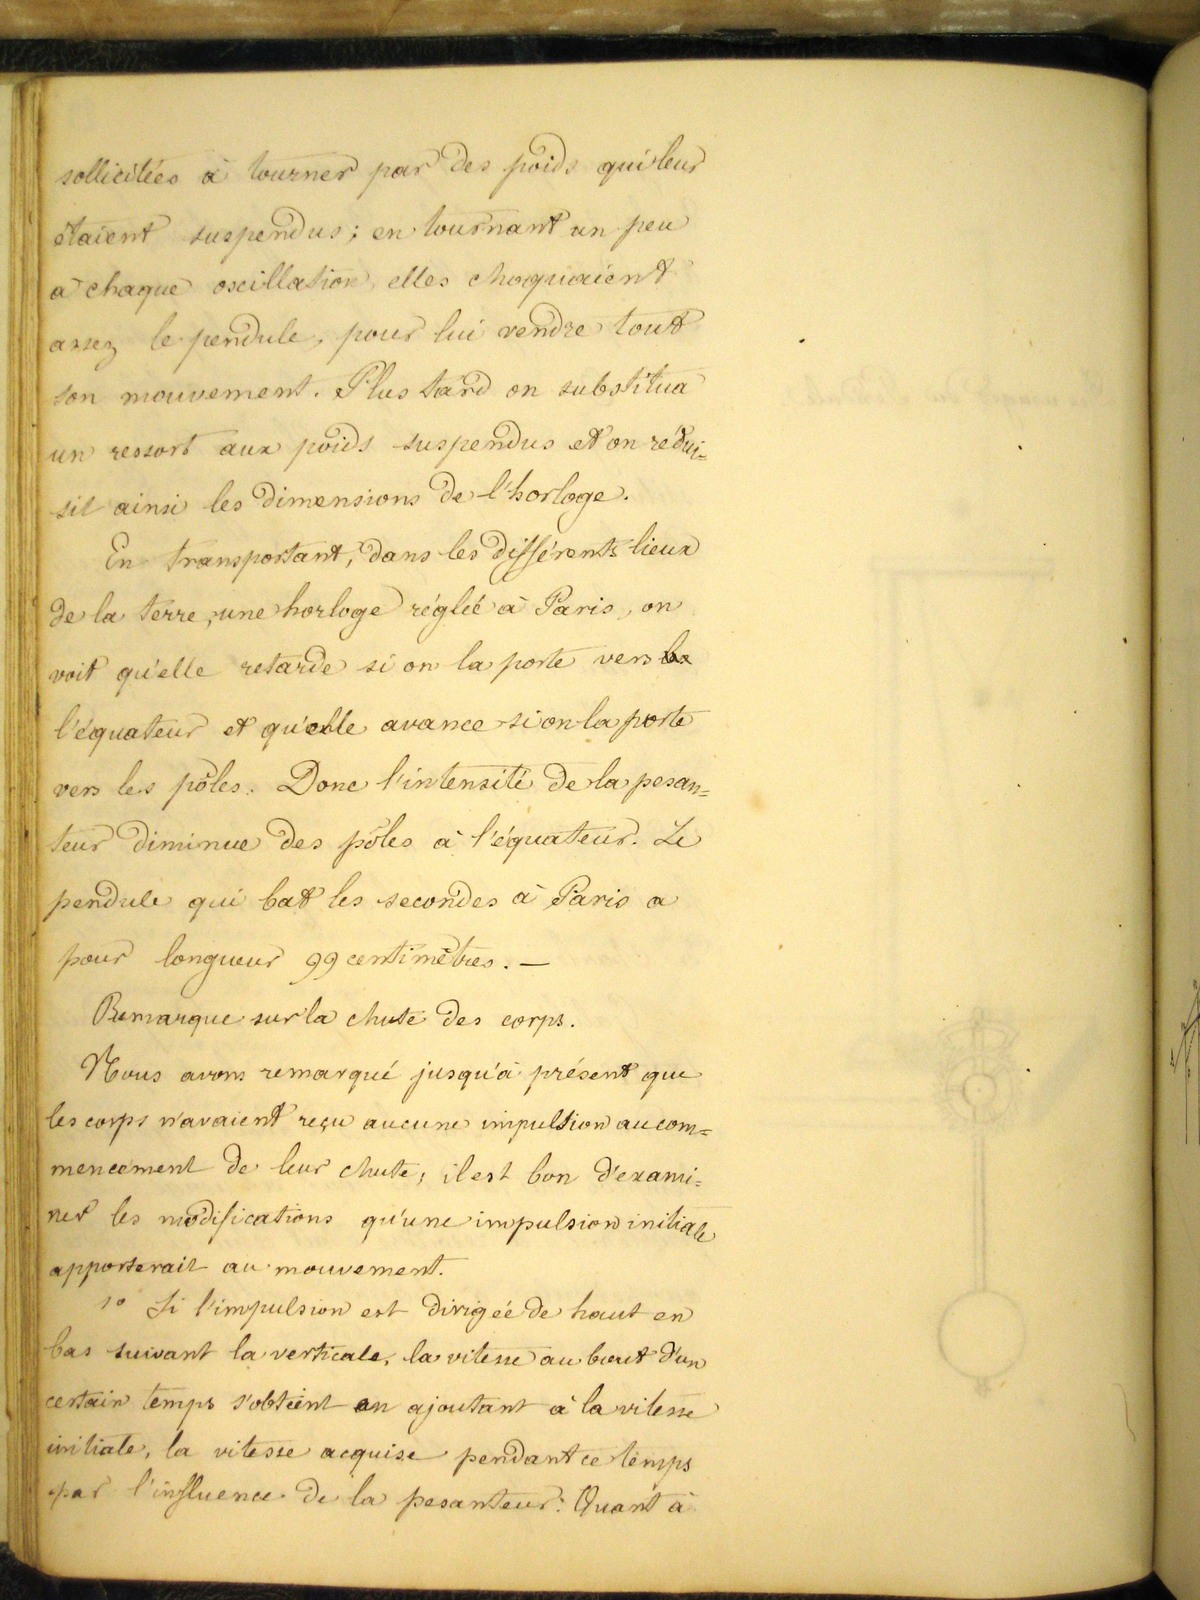 sollicitées à tourner par des poids qui leur
étaient suspendus; en tournant un peu
à chaque oscillation, elles choquaient
assez le pendule, pour lui rendre tout
son mouvement. Plus tard on substitua
un ressort aux poids suspendus et on rédui=
sit ainsi les dimensions de l'horloge.
En transportant, dans les différents lieux
de la terre, une horloge réglée à Paris, on
voit qu'elle retarde si on la porte vers
l'équateur et qu'elle avance si on la porte
vers les pôles. Donc l'intensité de la pesan=
teur diminue des pôles à l'équateur. Le
pendule qui bat les secondes à Paris a
pour longueur 99 centimètres. —
Remarque sur la chute des corps.
Nous avons remarqué jusqu'à présent que
les corps n'avaient reçu aucune impulsion au com=
mencement de leur chute; il est bon d'exami=
ner les modifications qu'une impulsion initiale
apporterait au mouvement.
1° Si l'impulsion est dirigée de haut en
bas suivant la verticale, la vitesse au bout d'un
certain temps s'obtient en ajoutant à la vitesse
initiale, la vitesse acquise pendant ce temps
par l'influence de la pesanteur. Quant à